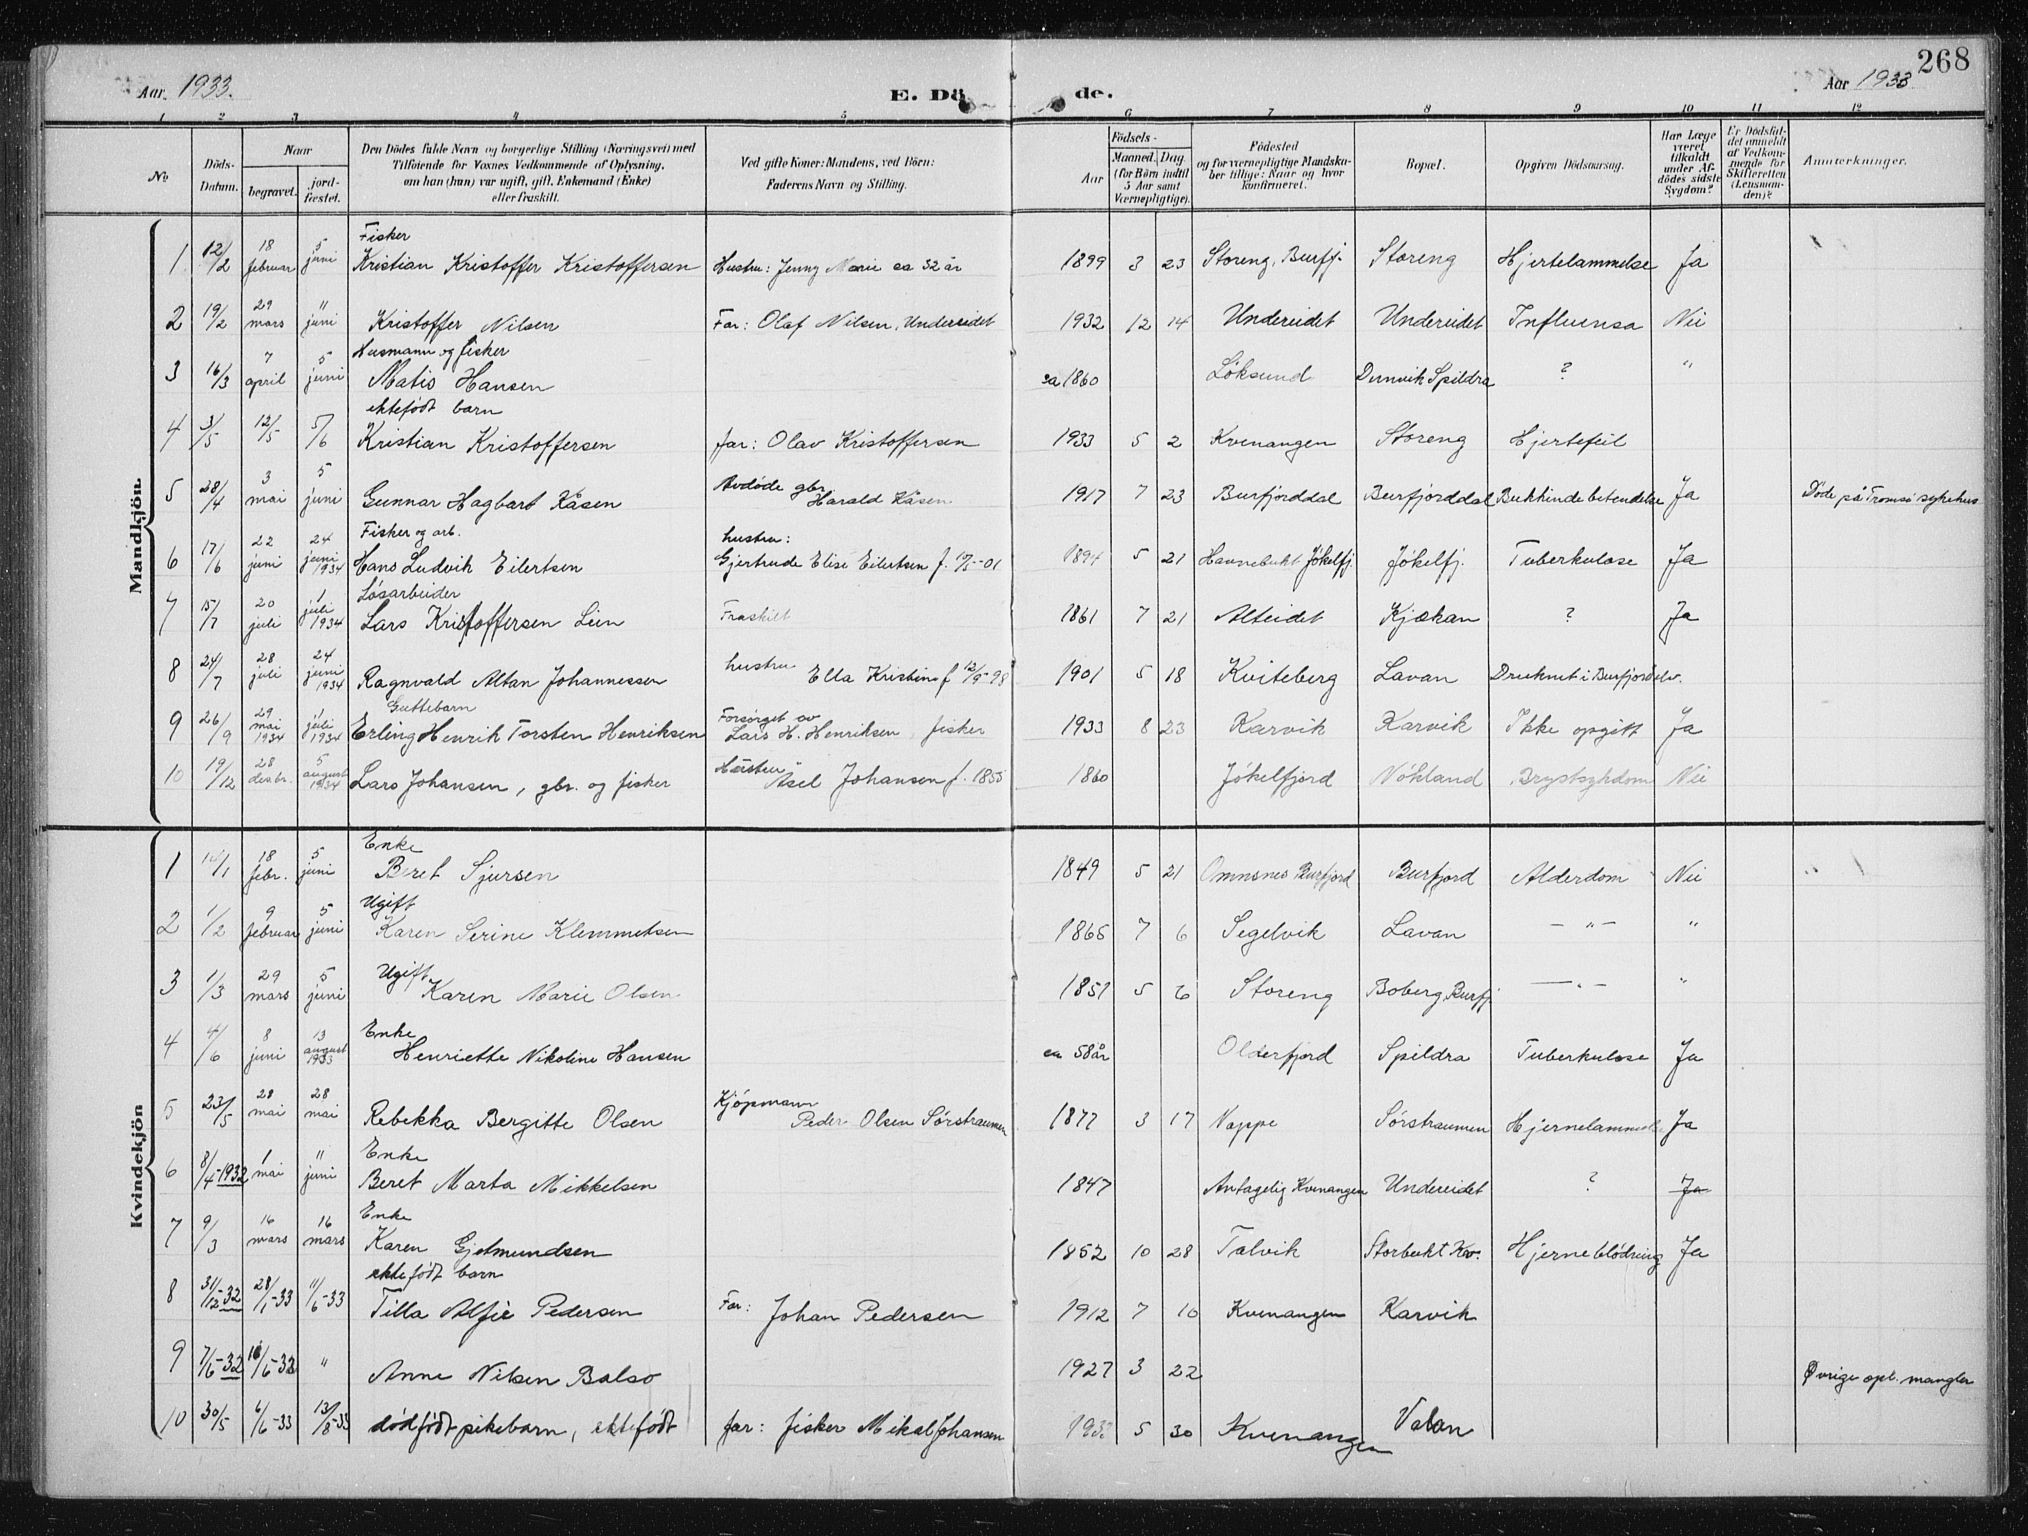 268
Aar 1933. E. Dö de. Aar 1933
1 2 3 4 5 6 7 8 9 10 11 12
No.
Döds-Datum.
Naar
begravet.
jord-fæstet.
Den Dödes fulde Navn og borgerlige Stilling (Næringsvei) med
Tilföiende for Voxnes Vedkommende af Oplysning,
om han (hun) var ugift, gift, Enkemand (Enke)
eller fraskilt.
Ved gifte Koner: Mandens, ved Börn:
Faderens Navn og Stilling.
Födsels-
Aar
Maaned. Dag.
(for Börn indtil
5 Aar samt
Værnepligtige).
Födested
og for værnepligtige Mandska-
ber tillige: Naar og hvor
konfirmeret.
Bopæl.
Opgiven Dödsaarsag.
Har Læge
været
tilkaldt
under Af-
dödes sidste
Sygdom?
Er Dödsfal-
det anmeldt
af Vedkom-
mende for
Skifteretten
(Lensman-
den)?
Anmærkninger.
Mandkjön.
Fisker
1 12/2 18 februar 5 juni Kristian Kristoffer Kristoffersen Hustru: Jenny Marie ca 32 år 1899 3 23 Storeng, Burfj. Storeng Hjertelammelse Ja
2 19/2 29 mars " juni Kristoffer Nilsen Far: Olaf Nilsen, Undereidet 1932 12 14 Undereidet Undereidet Influensa Nei
Husmann og fisker
3 16/3 7 april 5 juni Matis Hansen ca 1860 Löksund Dunvik Spildra ? "
ektefödt barn
4 3/5 12/5 5/6 Kristian Kristoffersen far: Olav Kristoffersen 1933 5 2 Kvenangen Storeng Hjertefeil
5 28/4 3 mai 5 juni Gunnar Hagbart Kåsen Avdöde gbr. Harald Kåsen 1917 7 23 Burfjorddal Burfjorddal Bukhindebetendelse Ja Döde på Tromsö sykehus
Fisker og arb.
6 17/6 22 juni 24 juni 1934 Hans Ludvik Eilertsen hustru: Gjertrude Elise Eilertsen f. 17/5-01 1894 5 21 Havnebukt Jökelfj. Jökelfj. Tuberkulose Ja
Lösarbeider
7 15/7 20 juli 1 juli 1934 Lars Kristoffersen Lien Fraskilt 1861 7 21 Alteidet Kjækan ? Ja
8 24/7 28 juli 24 juni 1934 Ragnvald Altan Johannessen hustru Ella Kristine f 12/9-98 1901 5 18 Kviteberg Lavan Druknet i Burfjordelv.
Guttebarn
9 26/9 29 mai 1934 1 juli 1934 Erling Henrik Torsten Henriksen Forsörget av Lars H. Henriksen fisker 1933 8 23 Karvik Karvik Ikke opgitt Ja
10 19/12 28 desbr. 5 august 1934 Lars Johansen, gbr. og fisker Hustru Asel Johansen f. 1855 1860 Jökelfjord Nökland Brystsykdom Nei
Kvindekjön
Enke
1 /1 18 febr. 5 juni Beret Sjursen 1849 5 21 Omnsnes Burfjord Burfjord Alderdom Nei
Ugift
2 1/2 9 februar 5 juni Karen Serine Klemmetsen 1865 7 6 Segelvik Lavan — " — "
Ugift
3 1/3 29 mars 5 juni Karen Marie Olsen 1851 5 6 Storeng Boberg, Burfj. — " — "
Enke
4 4/6 8 juni 13 august 1933 Henriette Nikoline Hansen ca 58 år Olderfjord Spildra Tuberkulose Ja
5 23/5 28 mai 28 mai Rebekka Bergitte Olsen Kjöpmann Peder Olsen Sörstraumen 1877 3 17 Nappe Sörstraumen Hjernelammelse Ja
Enke
6 8/4-1932 1 mai " juni Beret Marta Mikkelsen 1847 Antagelig Kvenangen Undereidet ? Ja
Enke
7 9/3 16 mars 16 mars Karen Gjetmundsen 1852 10 28 Talvik Storbukt Kv. Hjerneblödning Ja
ektefödt barn
8 31/12-32 28/1-33 11/6-33 Tilla Alfie Pedersen Far: Johan Pedersen 1912 7 10 Kvenangen Karvik
9 7/6-32 16/6-32 " Anne Nilsen Balso 1927 3 22 Övrige opl. mangler
10 30/5 6/6-33 13/8-33 dödfödt pikebarn, ektefödt far: fisker Mikal Johansen 1933 5 30 Kvenangen Valan